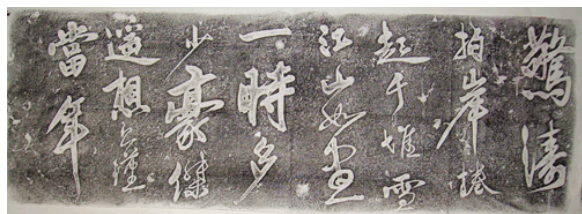 驚濤
拍岸捲
起千堆雪
江山如畫
一時多
少豪傑
遥想公瑾
當年